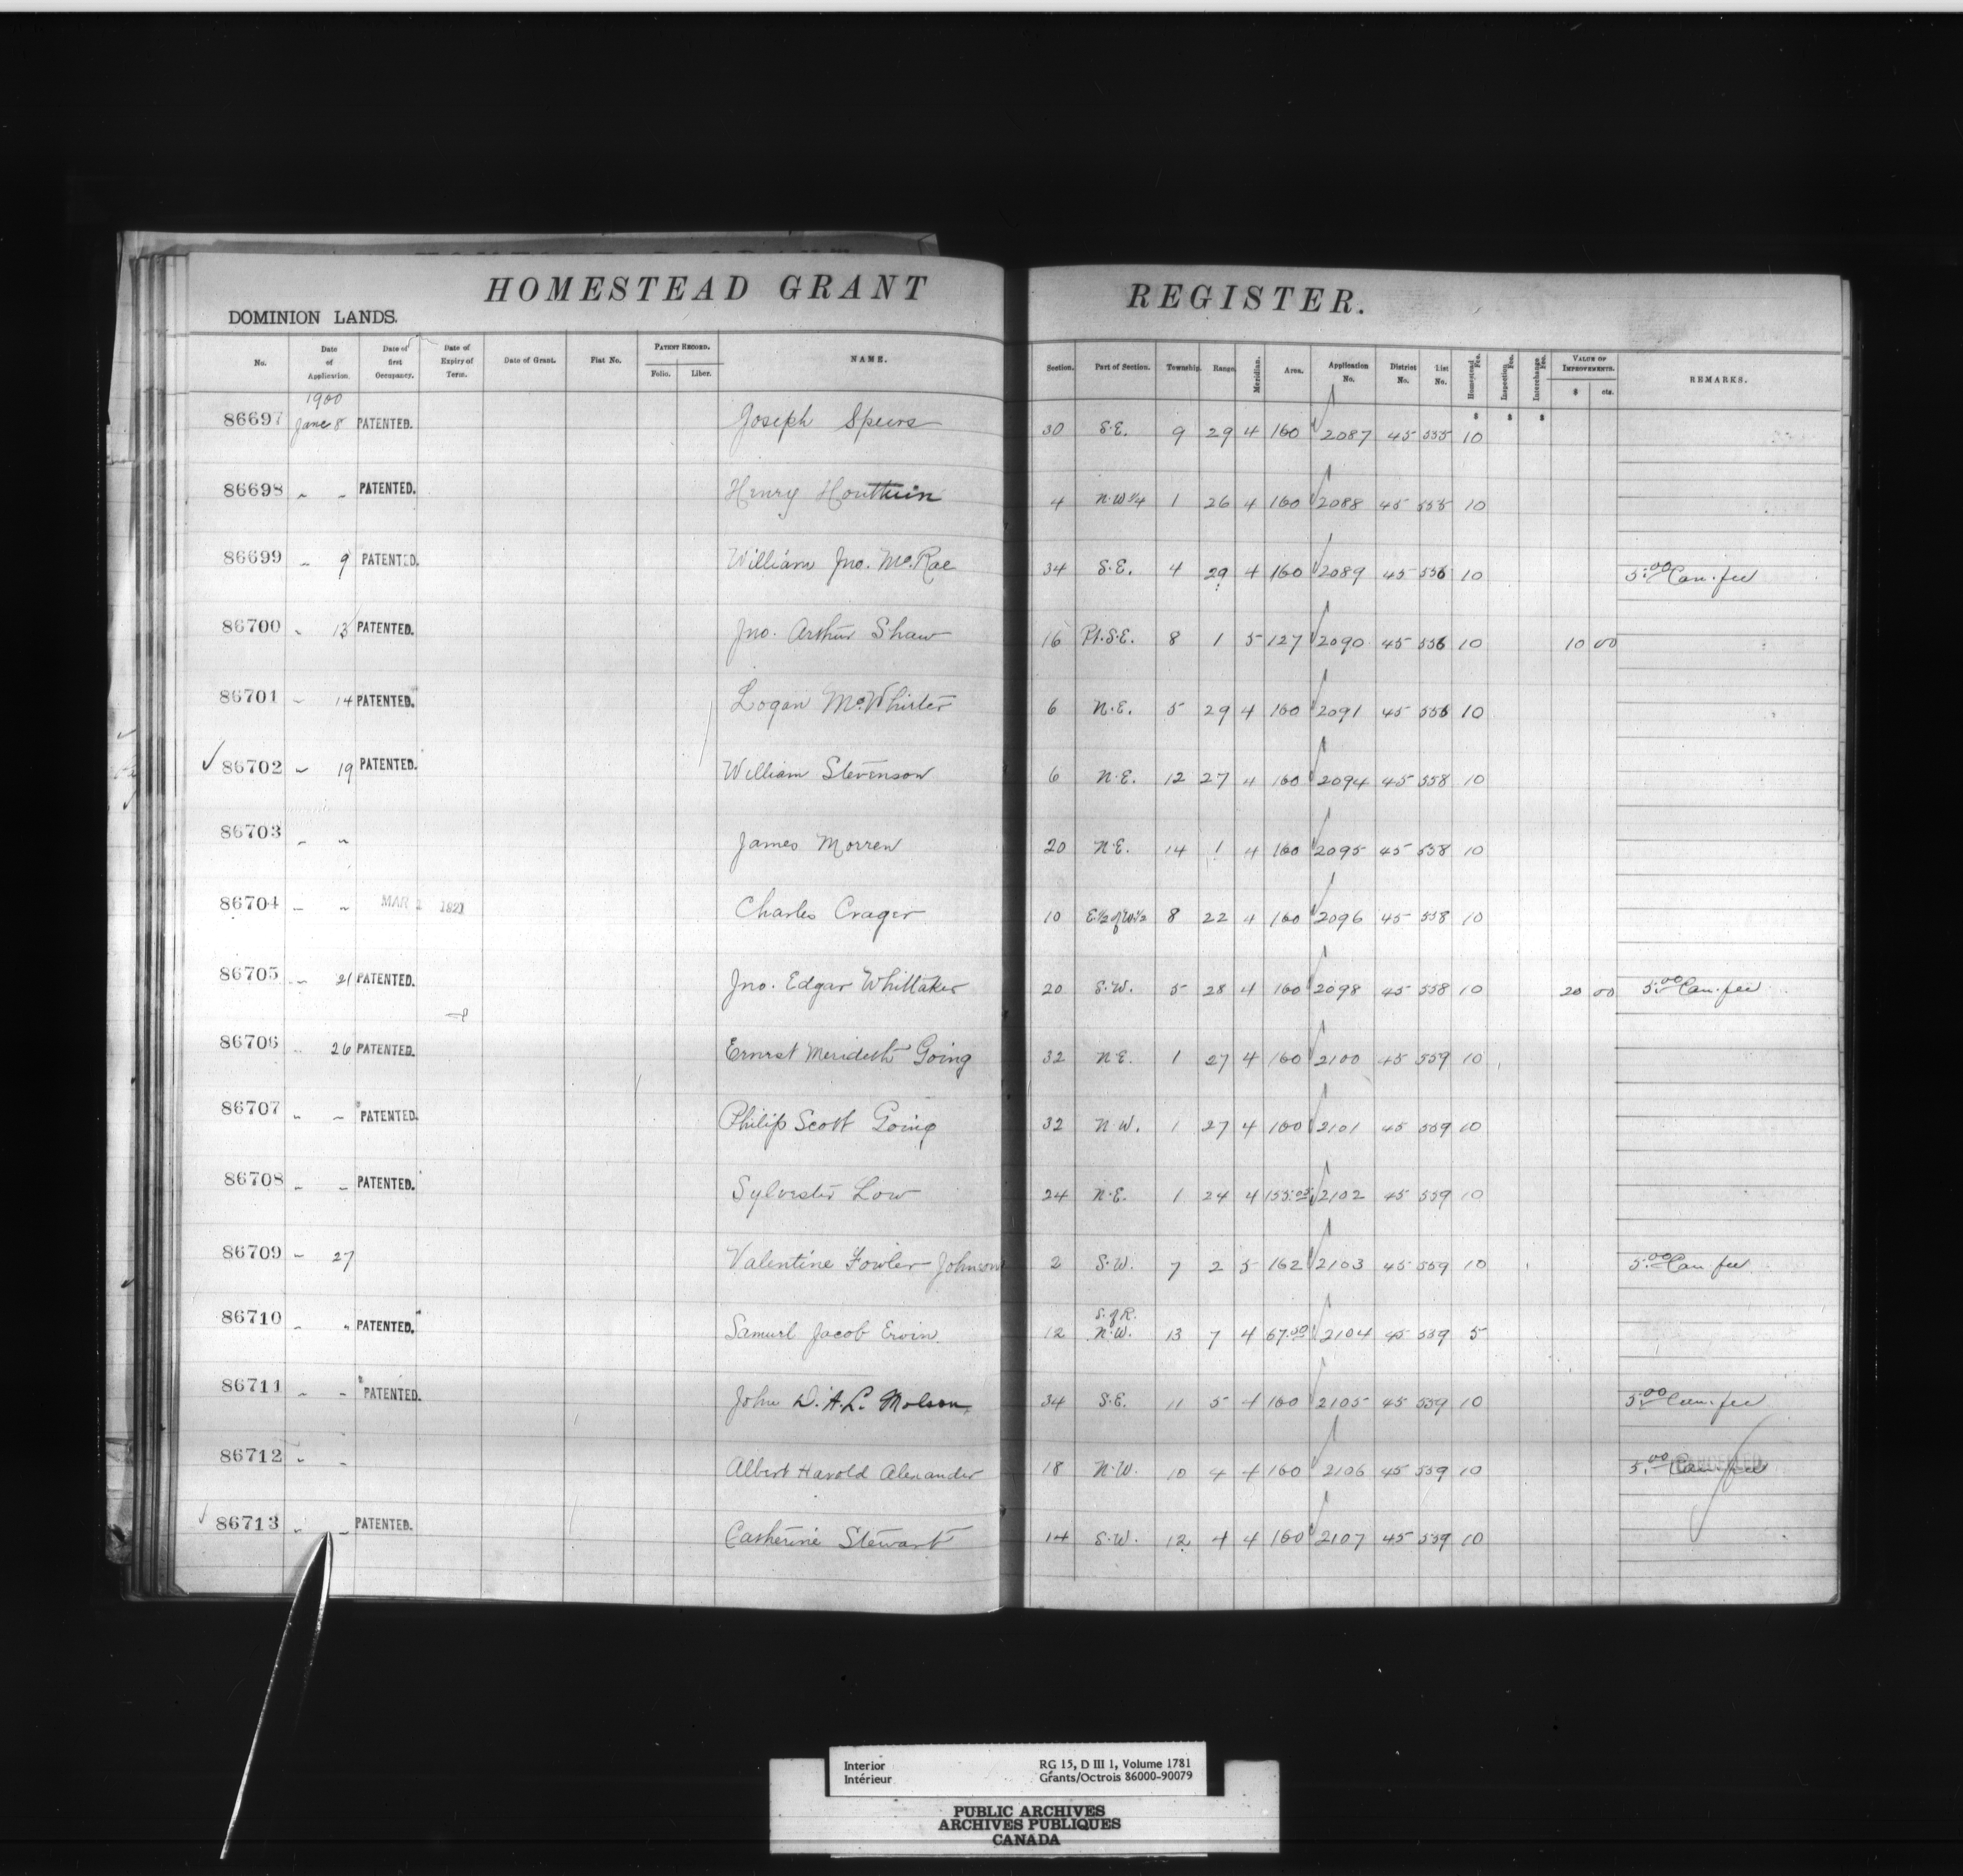 HOMESTEAD GRANT REGISTER.
DOMINION LANDS.
No. Date of Application. Date of first Occupancy. Date of Expiry of Term. Date of Grant. Fiat No. PATENT RECORD. Folio. Liber. NAME. Section. Part of Section. Township. Range. Meridian. Area. Application No. District No. List No. Homestead Fee. Inspection Fee. Interchange Fee. VALUE OF IMPROVEMENTS. $ cts. REMARKS.
1900
$ $ $
86697 June 8 PATENTED. Joseph Speers 30 S.E. 9 29 4 160 2087 45 555 10
86698 " " PATENTED. Henry 4 N.W 1/4 1 26 4 160 2088 45 555 10
86699 " 9 PATENTED. William Jno. McRae 34 S.E. 4 29 4 160 2089 45 556 10 5.00 Can. fee
86700 " 13 PATENTED. Jno. Arthur Shaw 16 Pt. S.E. 8 1 5 127 2090 45 556 10 10 00
86701 " 14 PATENTED. Logan McWhirter 6 N.E. 5 29 4 160 2091 45 556 10
86702 " 19 PATENTED. William Stevenson 6 N.E. 12 27 4 160 2094 45 558 10
86703 " " James Morren 20 N.E. 14 1 4 160 2095 45 558 10
86704 " " MAR 1921 Charles Crager 10 E.1/2 of W1/2 8 22 4 160 2096 45 558 10
86705 " 21 PATENTED. Jno. Edgar Whittaker 20 S.W. 5 28 4 160 2098 45 558 10 20 00 5.00 Can. fee
86706 " 26 PATENTED. Ernest Merideth Going 32 N.E. 1 27 4 160 2100 45 559 10
86707 " " PATENTED. Philip Scott Going 32 N.W. 1 27 4 160 2101 45 559 10
86708 " " PATENTED. Sylvester Low 24 N.E. 1 24 4 2102 45 559 10
86709 " 27 Valentine Fowler Johnson 2 S.W. 7 2 5 162 2103 45 559 10 5.00 Can. fee
S. of R.
86710 " " PATENTED. Samuel Jacob Ervin. 12 N.W. 13 7 4 67.50 2104 45 559 5
86711 " " PATENTED. John D. A. L. Molson 34 S.E. 11 5 4 160 2105 45 559 10 5.00 Can. fee
86712 " " Albert Harold Alexander 18 N.W. 10 4 4 160 2106 45 559 10 5.00 Can. fee CANCELLED
86713 " " PATENTED. Catherine Stewart 14 S.W. 12 4 4 160 2107 45 559 10
Interior RG 15, D III 1, Volume 1781
Intérieur Grants/Octrois 86000-90079
PUBLIC ARCHIVES
ARCHIVES PUBLIQUES
CANADA